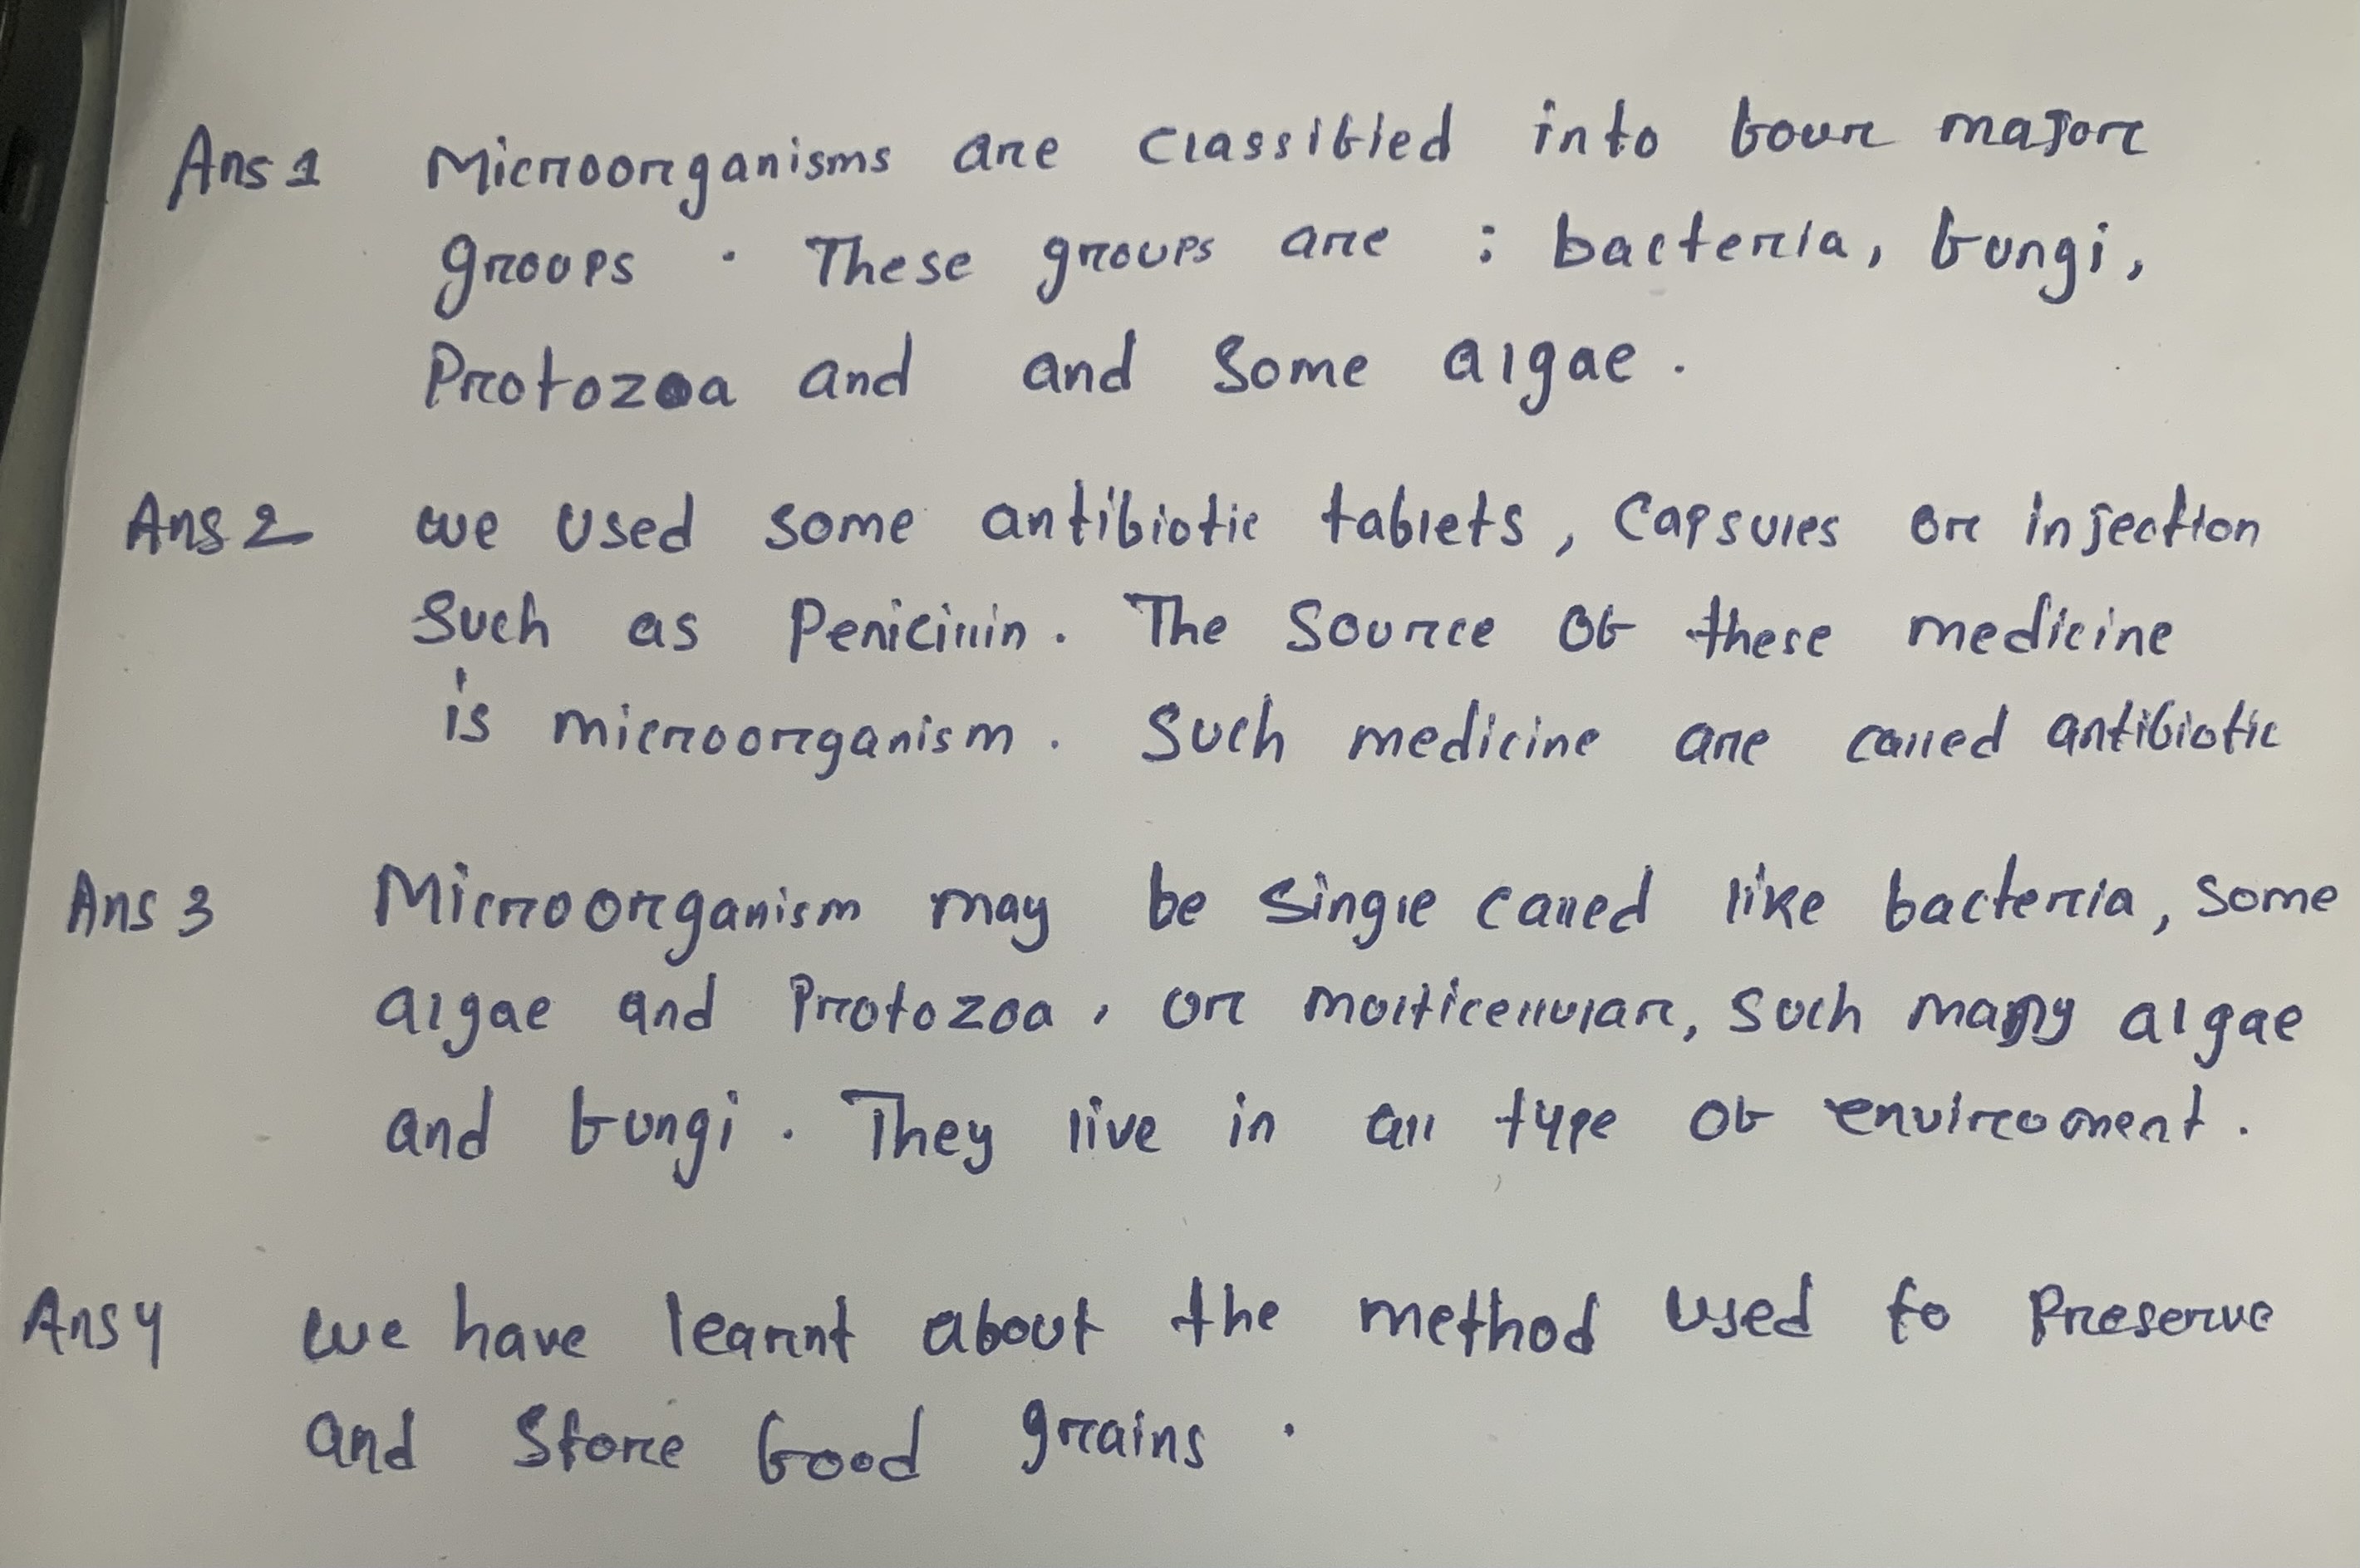 Ans 1 Microorganisms are classified into four major
groups . These groups are : bacteria, fungi,
Protozoa and and some algae .
Ans 2 we used some antibiotic tablets , Capsules or injection
Such as Penicillin . The Source of these medicine
is microorganism . Such medicine are called antibiotic
Ans 3 Microorganism may be Single called like bacteria, Some
algae and Protozoa , or multicellular, such many algae
and fungi . They live in all type of enviroment .
Ans 4 we have learnt about the method used to Preserve
and Store food grains .